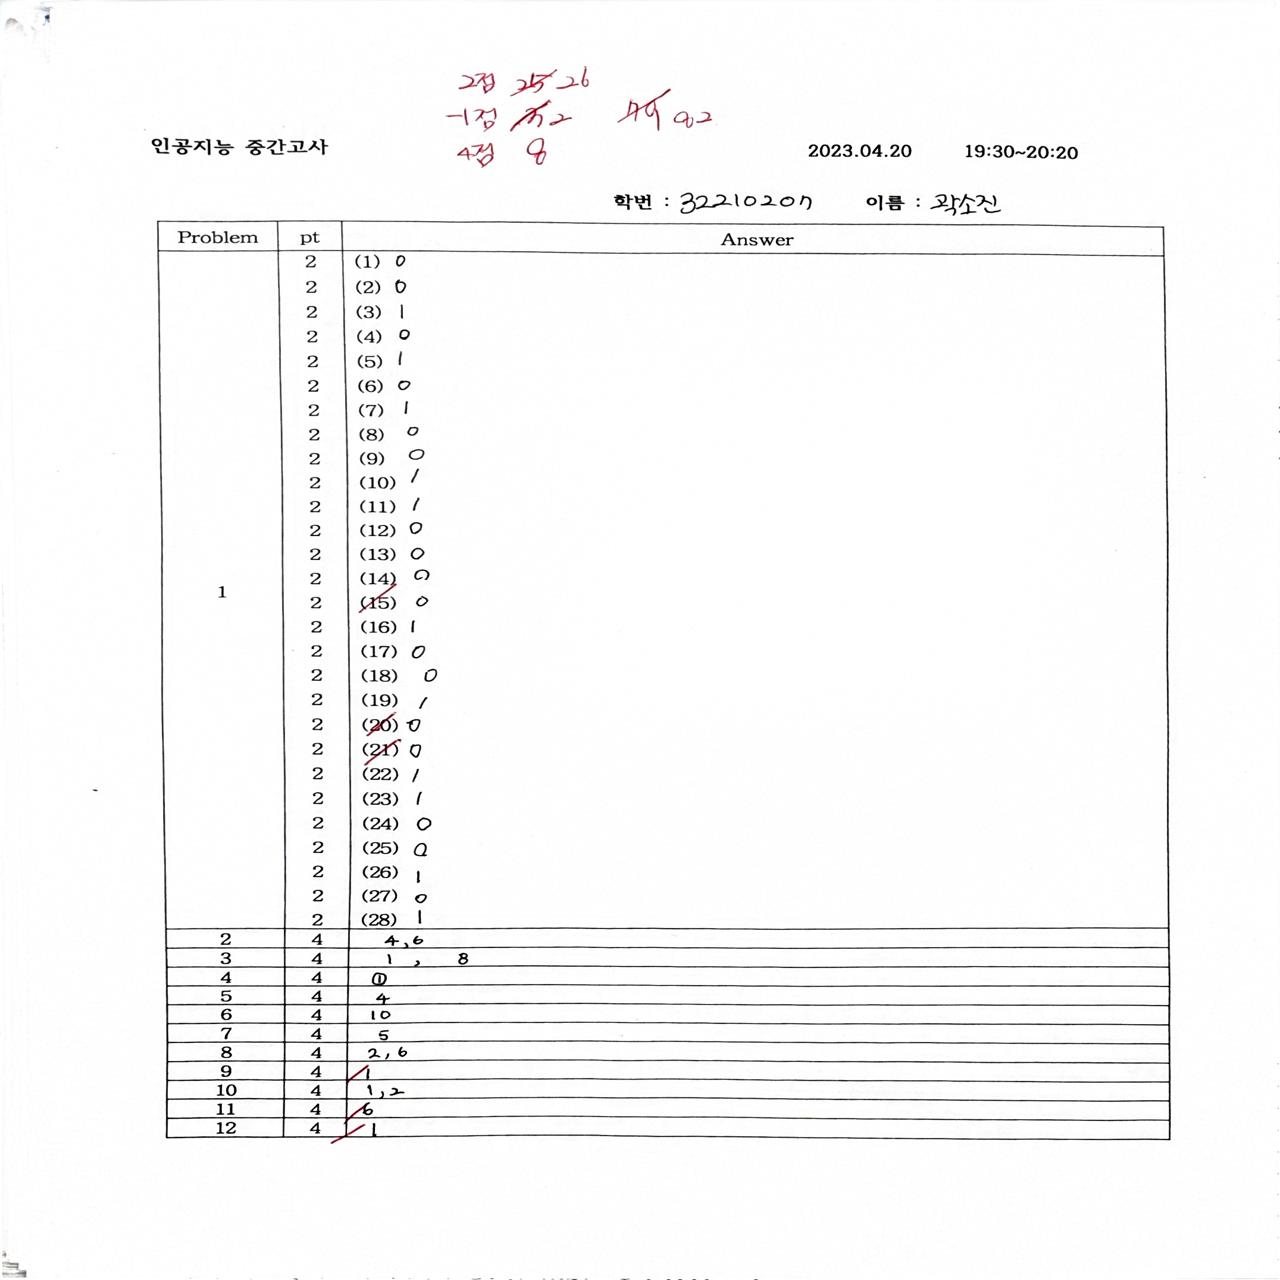 2점 25 26
-1점 2 79 82
4점 8
인공지능 중간고사 2023.04.20 19:30~20:20
학번 : 32210207 이름 : 곽소진
Problem pt Answer
2 (1) 0
2 (2) 0
2 (3) 1
2 (4) 0
2 (5) 1
2 (6) 0
2 (7) 1
2 (8) 0
2 (9) 0
2 (10) 1
2 (11) 1
2 (12) 0
2 (13) 0
2 (14) 0
1 2 (15) 0
2 (16) 1
2 (17) 0
2 (18) 0
2 (19) 1
2 (20) 0
2 (21) 0
2 (22) 1
2 (23) 1
2 (24) 0
2 (25) 0
2 (26) 1
2 (27) 0
2 (28) 1
2 4 4,6
3 4 1, 8
4 4 ①
5 4 4
6 4 10
7 4 5
8 4 2,6
9 4 1
10 4 1,2
11 4 6
12 4 1